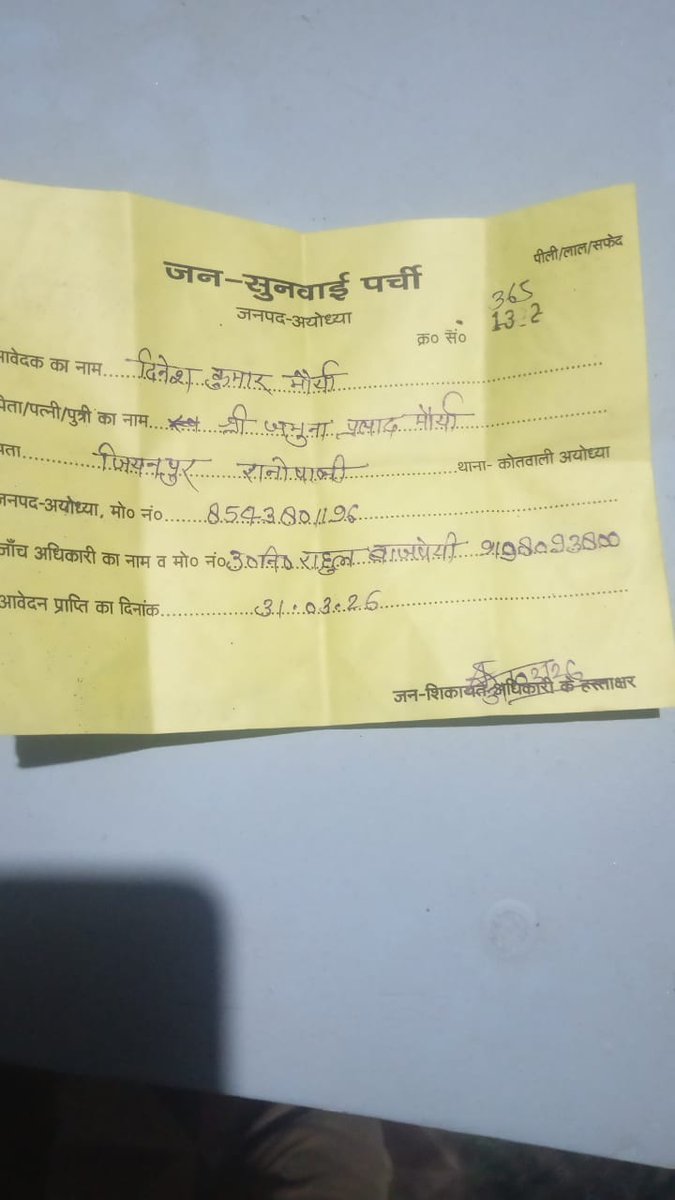 पीली/लाल/सफेद
जन-सुनवाई पर्ची
जनपद-अयोध्या
क्र० सं० 365
13-2
आवेदक का नाम.....दिनेश कुमार मौर्या
पिता/पत्नी/पुत्री का नाम... श्री जमुना प्रसाद मौर्या
पता.....जियनपुर रानोपाली.....थाना- कोतवाली अयोध्या
जनपद-अयोध्या, मो० नं०.....8543801196
जाँच अधिकारी का नाम व मो० नं० उ०नि० राहुल बाजपेयी 9198093800
आवेदन प्राप्ति का दिनांक.....31.03.26
जन-शिकायत अधिकारी के हस्ताक्षर